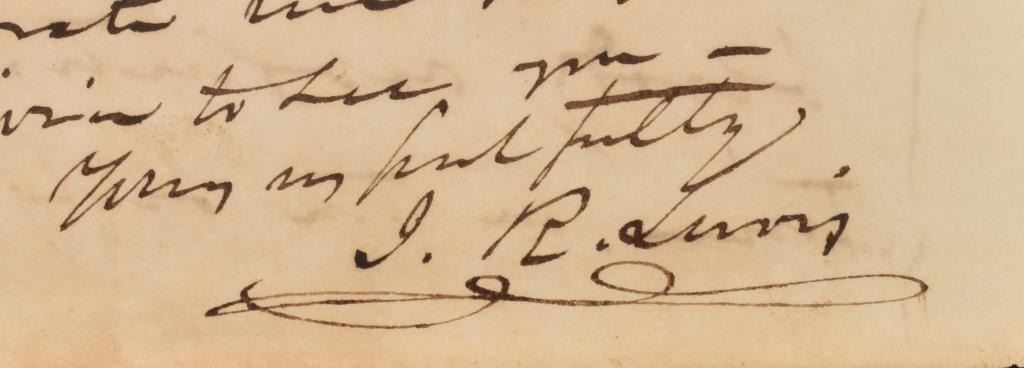 to see you —
Yours respectfully
J. R. Lewis